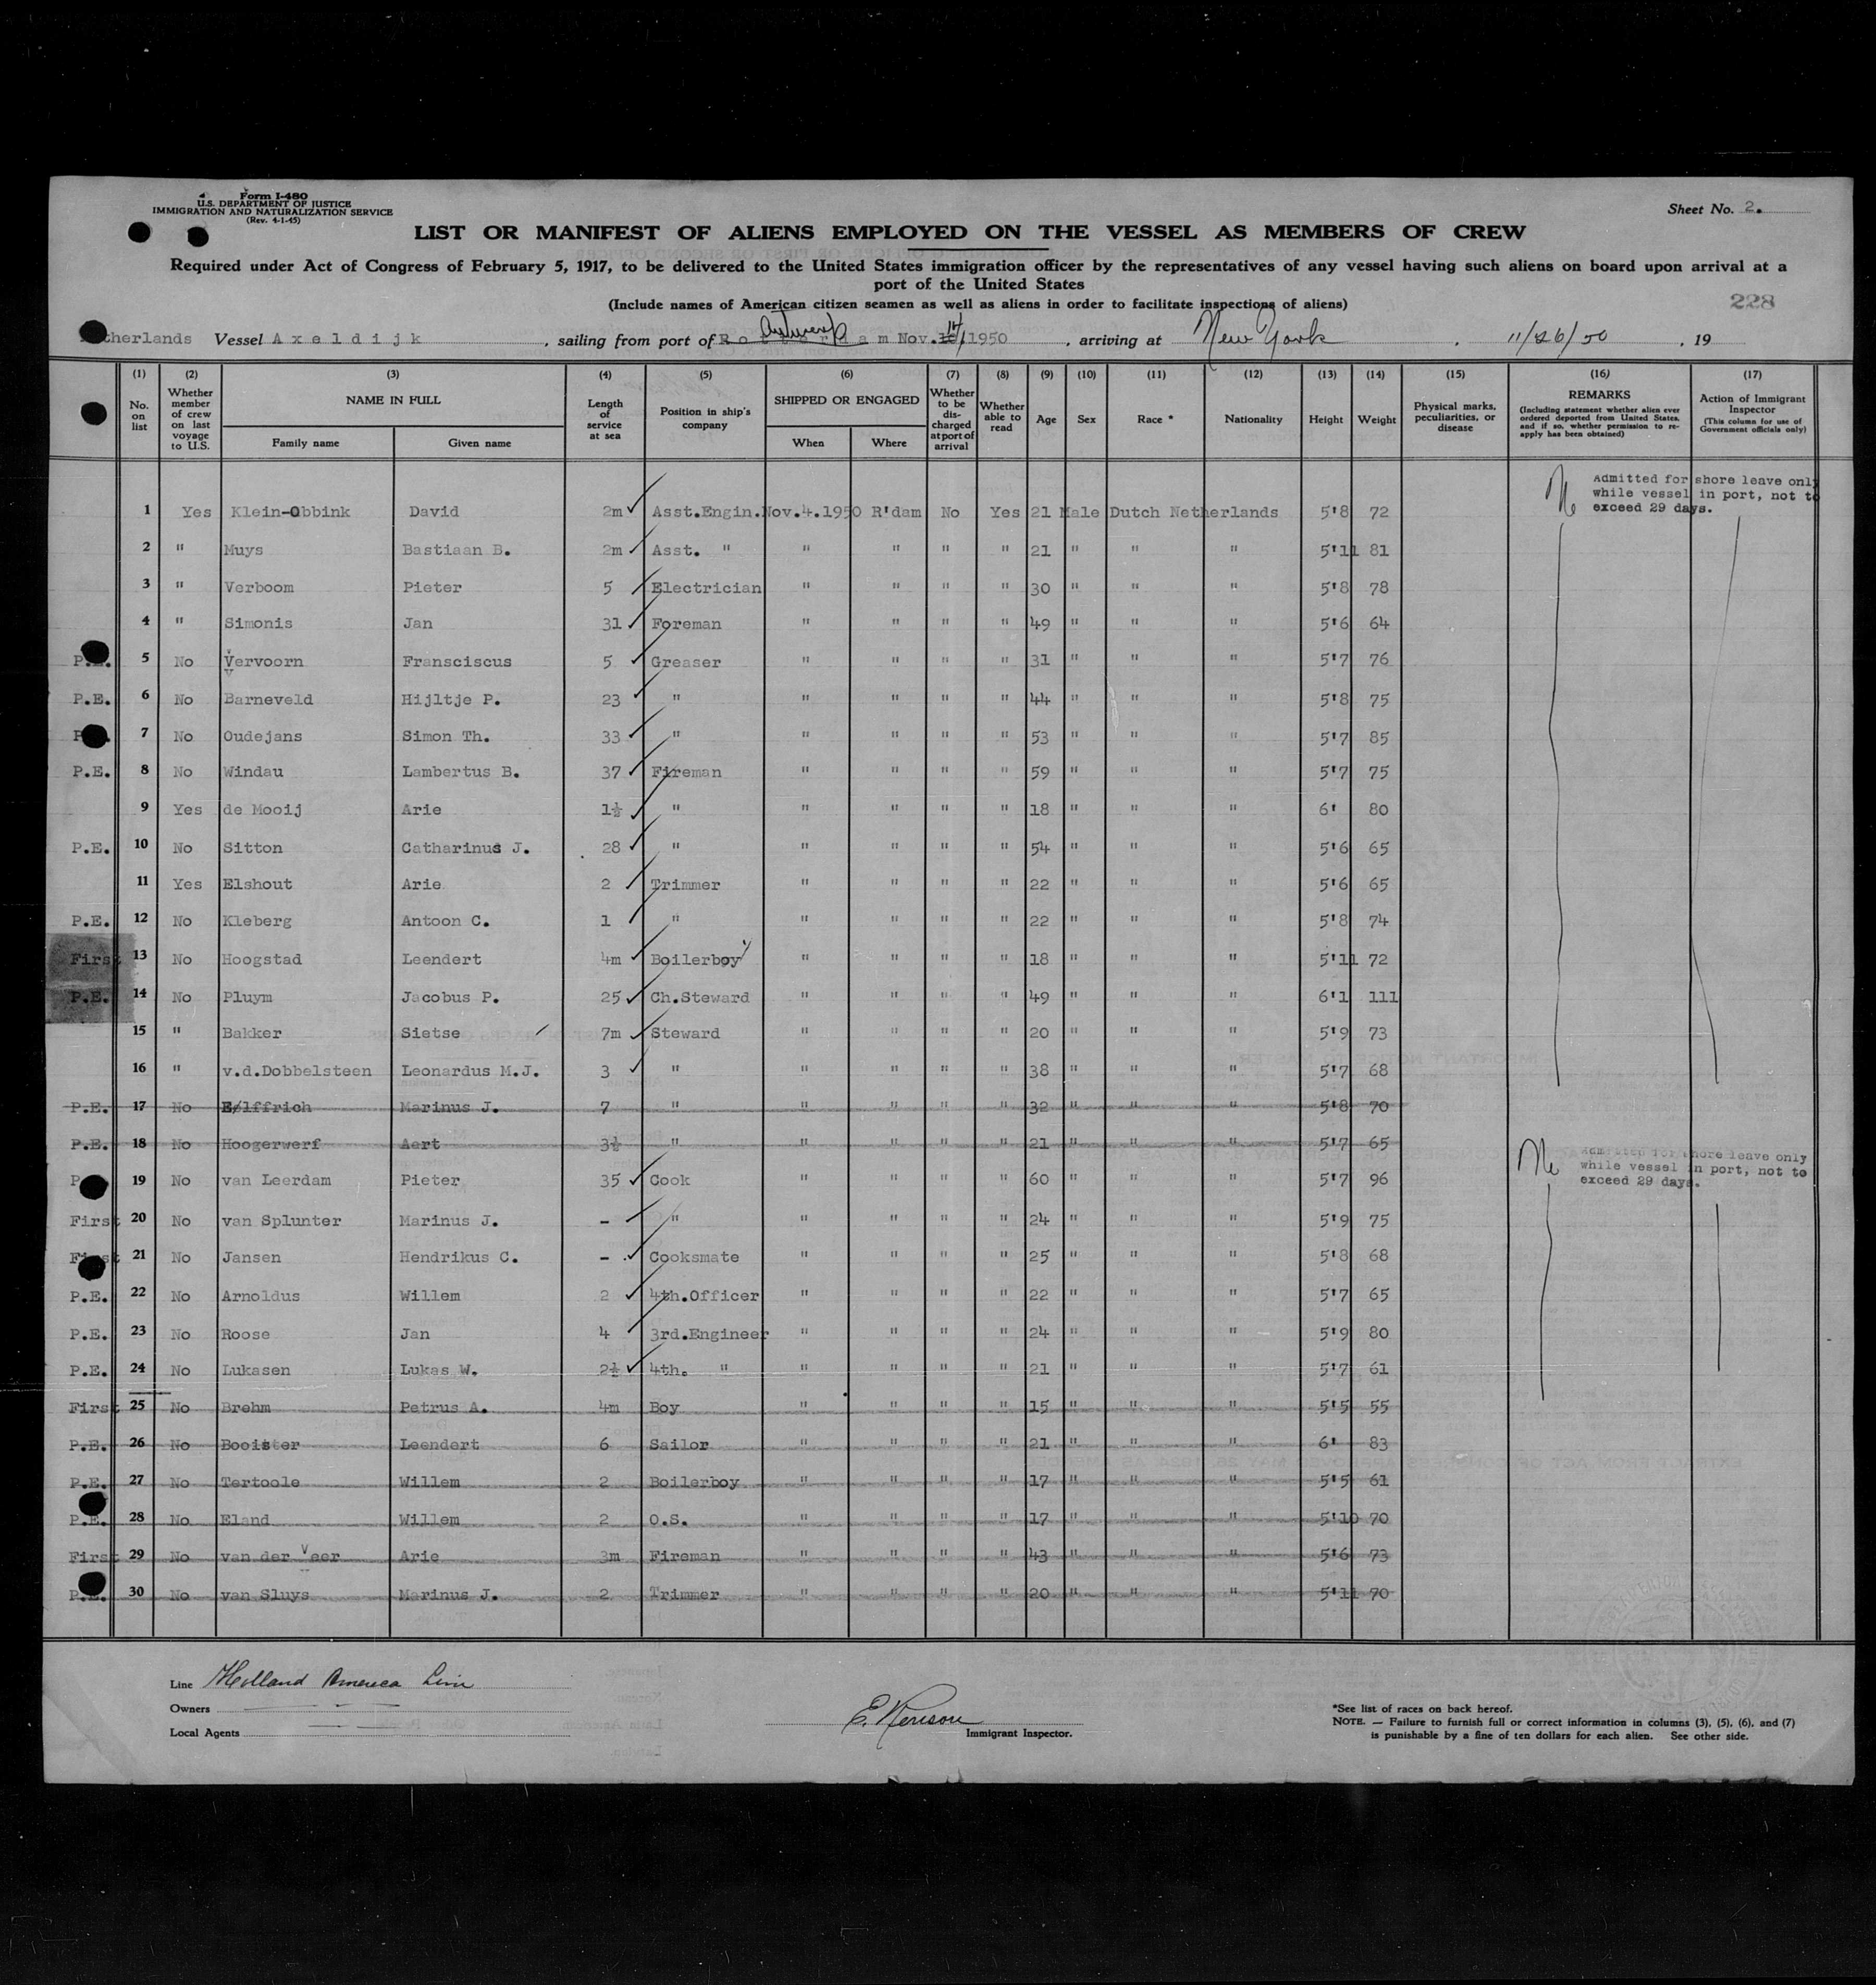 Form I-480
U.S. DEPARTMENT OF JUSTICE
IMMIGRATION AND NATURALIZATION SERVICE
(Rev. 4-1-45)
Sheet No. 2.
LIST OR MANIFEST OF ALIENS EMPLOYED ON THE VESSEL AS MEMBERS OF CREW
Required under Act of Congress of February 5, 1917, to be delivered to the United States immigration officer by the representatives of any vessel having such aliens on board upon arrival at a
port of the United States
(Include names of American citizen seamen as well as aliens in order to facilitate inspections of aliens)
228
therlands Vessel Axeldijk, sailing from port of Rotterdam Antwerp Nov. 1950, arriving at New York, 11/26/50, 19
(1) (2) (3) (4) (5) (6) (7) (8) (9) (10) (11) (12) (13) (14) (15) (16) (17)
No. on list
Whether member of crew on last voyage to U.S.
NAME IN FULL
Family name Given name
Length of service at sea
Position in ship's company
SHIPPED OR ENGAGED
When Where
Whether to be discharged at port of arrival
Whether able to read
Age Sex Race * Nationality Height Weight
Physical marks, peculiarities, or disease
REMARKS
(Including statement whether alien ever ordered deported from United States, and if so, whether permission to re-apply has been obtained)
Action of Immigrant Inspector
(This column for use of Government officials only)
Admitted for shore leave only
while vessel in port, not to
exceed 29 days.
1 Yes Klein-Obbink David 2m Asst.Engin. Nov.4.1950 R'dam No Yes 21 Male Dutch Netherlands 5'8 72
2 " Muys Bastiaan B. 2m Asst. " " " " " 21 " " " 5'11 81
3 " Verboom Pieter 5 Electrician " " " " 30 " " " 5'8 78
4 " Simonis Jan 31 Foreman " " " " 49 " " " 5'6 64
5 No Vervoorn Fransciscus 5 Greaser " " " " 31 " " " 5'7 76
P.E. 6 No Barneveld Hijltje P. 23 " " " " " 44 " " " 5'8 75
7 No Oudejans Simon Th. 33 " " " " " 53 " " " 5'7 85
P.E. 8 No Windau Lambertus B. 37 Fireman " " " " 59 " " " 5'7 75
9 Yes de Mooij Arie 1½ " " " " " 18 " " " 6' 80
P.E. 10 No Sitton Catharinus J. 28 " " " " " 54 " " " 5'6 65
11 Yes Elshout Arie 2 Trimmer " " " " 22 " " " 5'6 65
P.E. 12 No Kleberg Antoon C. 1 " " " " " 22 " " " 5'8 74
First 13 No Hoogstad Leendert 4m Boilerboy " " " " 18 " " " 5'11 72
P.E. 14 No Pluym Jacobus P. 25 Ch.Steward " " " " 49 " " " 6'1 111
15 " Bakker Sietse 7m Steward " " " " 20 " " " 5'9 73
16 " v.d.Dobbelsteen Leonardus M.J. 3 " " " " " 38 " " " 5'7 68
P.E. 17 No Eolffrich Marinus J. 7 " " " " " 32 " " " 5'8 70
P.E. 18 No Hoogerwerf Aart 3½ " " " " " 21 " " " 5'7 65
Admitted for shore leave only
while vessel in port, not to
exceed 29 days.
19 No van Leerdam Pieter 35 Cook " " " " 60 " " " 5'7 96
First 20 No van Splunter Marinus J. - " " " " " 24 " " " 5'9 75
First 21 No Jansen Hendrikus C. - Cooksmate " " " " 25 " " " 5'8 68
P.E. 22 No Arnoldus Willem 2 4th.Officer " " " " 22 " " " 5'7 65
P.E. 23 No Roose Jan 4 3rd.Engineer " " " " 24 " " " 5'9 80
P.E. 24 No Lukasen Lukas W. 2½ 4th. " " " " " 21 " " " 5'7 61
First 25 No Brehm Petrus A. 4m Boy " " " " 15 " " " 5'5 55
P.E. 26 No Booister Leendert 6 Sailor " " " " 21 " " " 6' 83
P.E. 27 No Tertoole Willem 2 Boilerboy " " " " 17 " " " 5'5 61
P.E. 28 No Eland Willem 2 O.S. " " " " 17 " " " 5'10 70
First 29 No van der Veer Arie 3m Fireman " " " " 43 " " " 5'6 73
P.E. 30 No van Sluys Marinus J. 2 Trimmer " " " " 20 " " " 5'11 70
Line Holland America Line
Owners
Local Agents
Immigrant Inspector.
*See list of races on back hereof.
NOTE. — Failure to furnish full or correct information in columns (3), (5), (6), and (7)
is punishable by a fine of ten dollars for each alien. See other side.